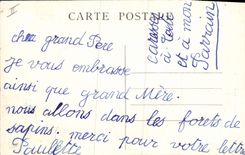 II
CARTE POSTALE
cher grand Père
je vous embrasse
ainsi que grand Mère.
nous allons dans les forets de
sapins. merci pour votre lettre
Paulette
caresses
à tous
et à mon
Parrain